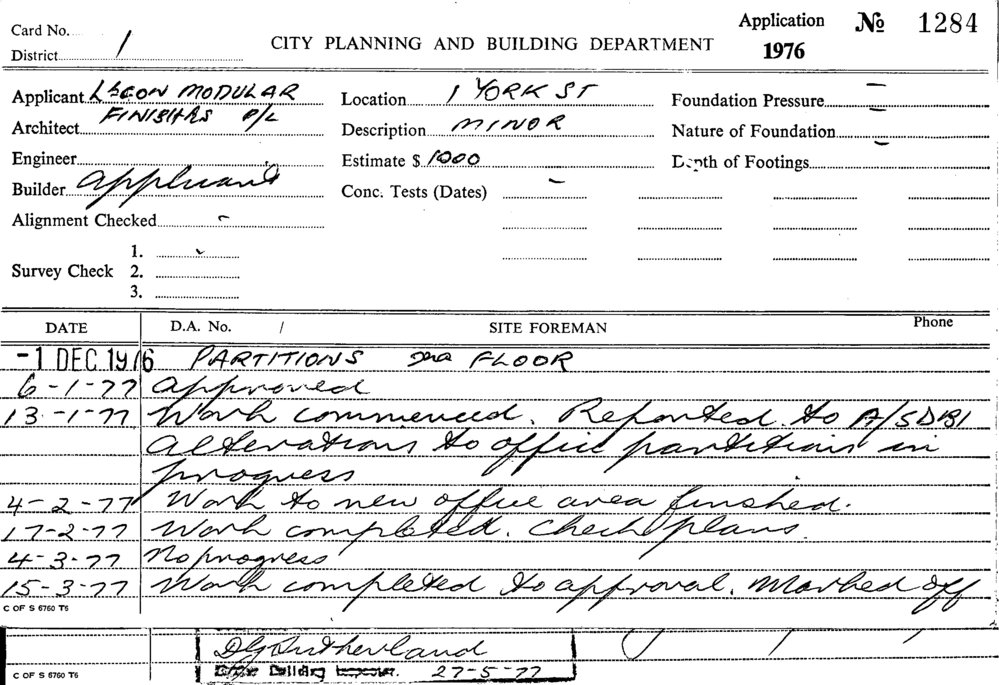 Card No.
District 1
CITY PLANNING AND BUILDING DEPARTMENT
Application No 1284
1976
Applicant MODULAR
FINISHES P/L
Architect
Engineer
Builder Applicant
Alignment Checked -
Survey Check 1.
2.
3.
Location 1 YORK ST
Description MINOR
Estimate $ 1000
Conc. Tests (Dates) -
Foundation Pressure -
Nature of Foundation -
Depth of Footings -
DATE D.A. No. / SITE FOREMAN Phone
-1 DEC 1976 PARTITIONS 2nd FLOOR
6-1-77 Approved
13-1-77 Work commenced. Reported to A/SDBI
Alterations to office partitions in
progress
4-2-77 Work to new office area finished.
17-2-77 Work completed. Check plans.
4-3-77 No progress
15-3-77 Work completed to approval. Marked off
C OF S 6760 T6
D G Sutherland
Building 27-5-77
C OF S 6760 T6